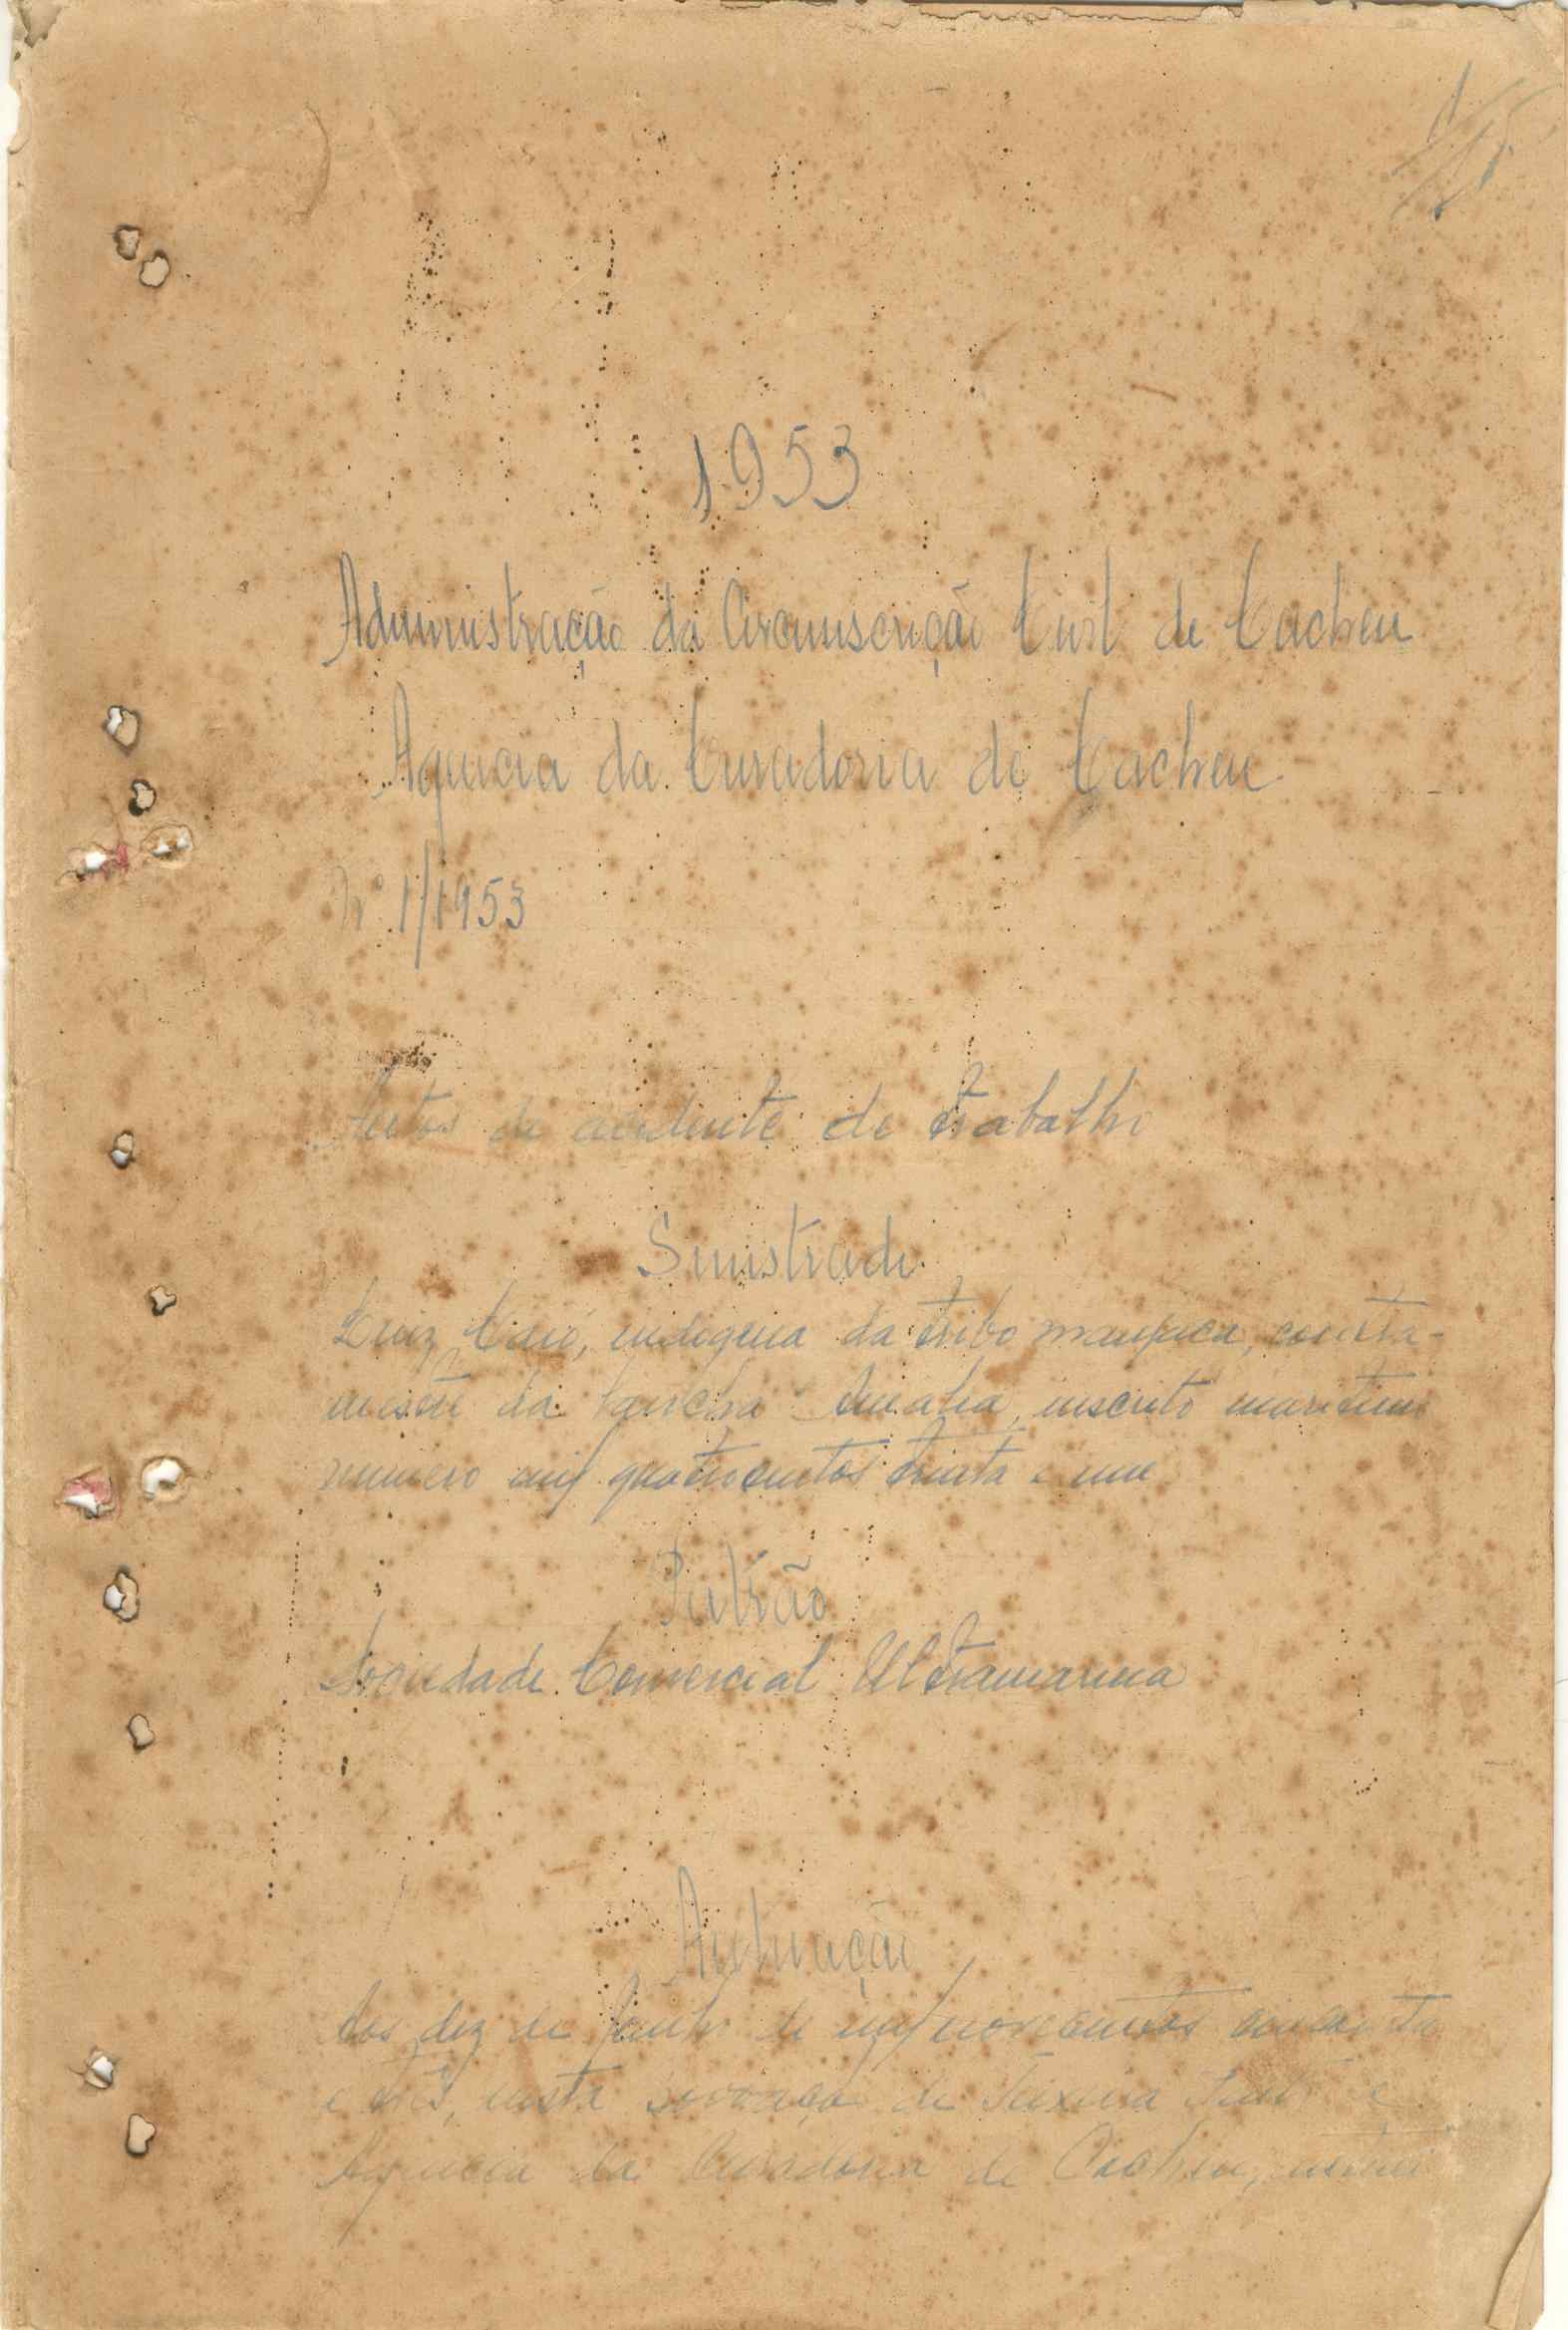 1953
Administração da Circunscrição Civil de Cacheu
Agencia da Curadoria de Cacheu
Nº 1/1953
Autos de acidente de trabalho
Sinistrado
Luiz Caio, indigena da tribo manjaca, contra-
mestre da lancha Amalia, inscrito maritimo
numero mil quatrocentos trinta e um
Patrão
Sociedade Comercial Ultramarina
Autuação
Aos dez de Junho de mil novecentos cincoenta
e três, nesta povoação de Teixeira Pinto e
Agencia da Curadoria de Cacheu,